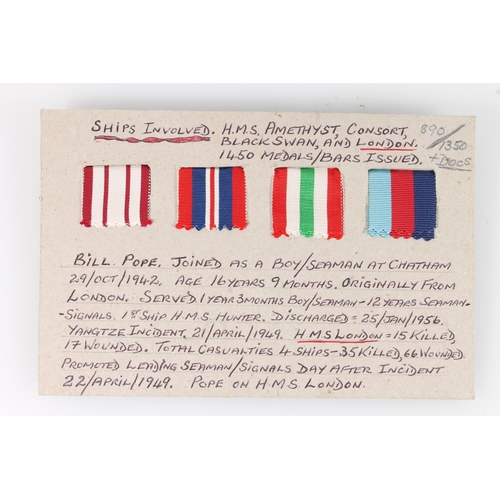 SHIPS INVOLVED. H.M.S. AMETHYST, CONSORT,
BLACK SWAN, AND LONDON.
1450 MEDALS/BARS ISSUED.
890/1350
+ DOCS
BILL. POPE. JOINED AS A BOY/SEAMAN AT CHATHAM
29/OCT/1942. AGE 16 YEARS 9 MONTHS. ORIGINALLY FROM
LONDON. SERVED 1 YEAR 3 MONTHS BOY/SEAMAN - 12 YEARS SEAMAN-
-SIGNALS. 1st SHIP H.M.S. HUNTER. DISCHARGED = 25/JAN/1956.
YANGTZE INCIDENT. 21/APRIL/1949. H.M.S LONDON = 15 KILLED,
17 WOUNDED. TOTAL CASUALTIES 4 SHIPS - 35 KILLED, 66 WOUNDED
PROMOTED LEADING SEAMAN/SIGNALS DAY AFTER INCIDENT
22/APRIL/1949. POPE ON H.M.S. LONDON.